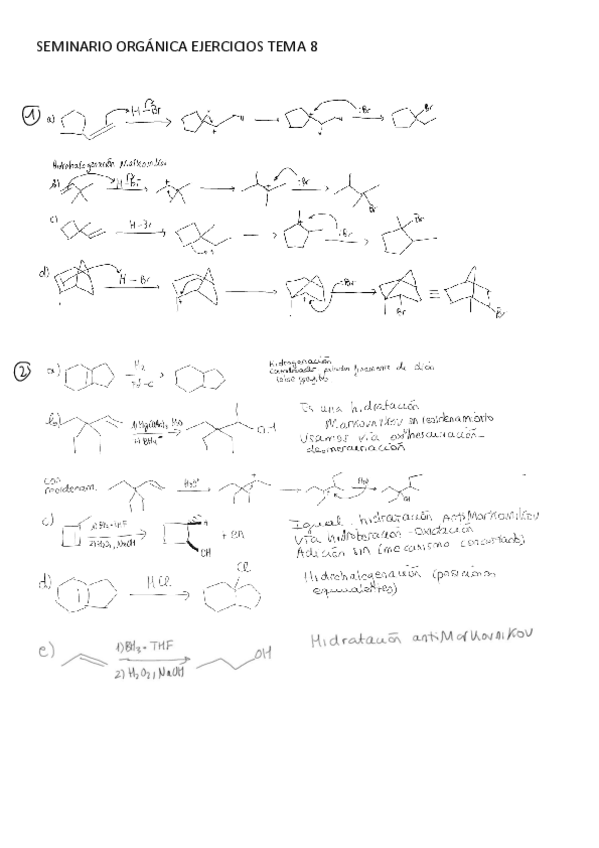 SEMINARIO ORGÁNICA EJERCICIOS TEMA 8
1 a) H-Br :Br Br
Hidrohalogenación Markovnikov
b) H-Br :Br Br
c) H-Br :Br Br
d) H-Br :Br Br ≡ Br
2 a) H2
Pd-C
Hidrogenación
b)
Es una hidratación
Markovnikov sin reordenamiento
Usamos vía oximercuriación-
desmercuriación
con
reordenam. H3O+
c) 1)BH3·THF
2)H2O2, NaOH
OH
Igual. hidratación AntiMarkovnikov
Vía hidroboración-oxidación
Adición sin (mecanismo concertado)
d) HCl Cl
Hidrohalogenación (posiciones
equivalentes)
e) 1)BH3·THF
2)H2O2, NaOH
OH
Hidratación antiMarkovnikov